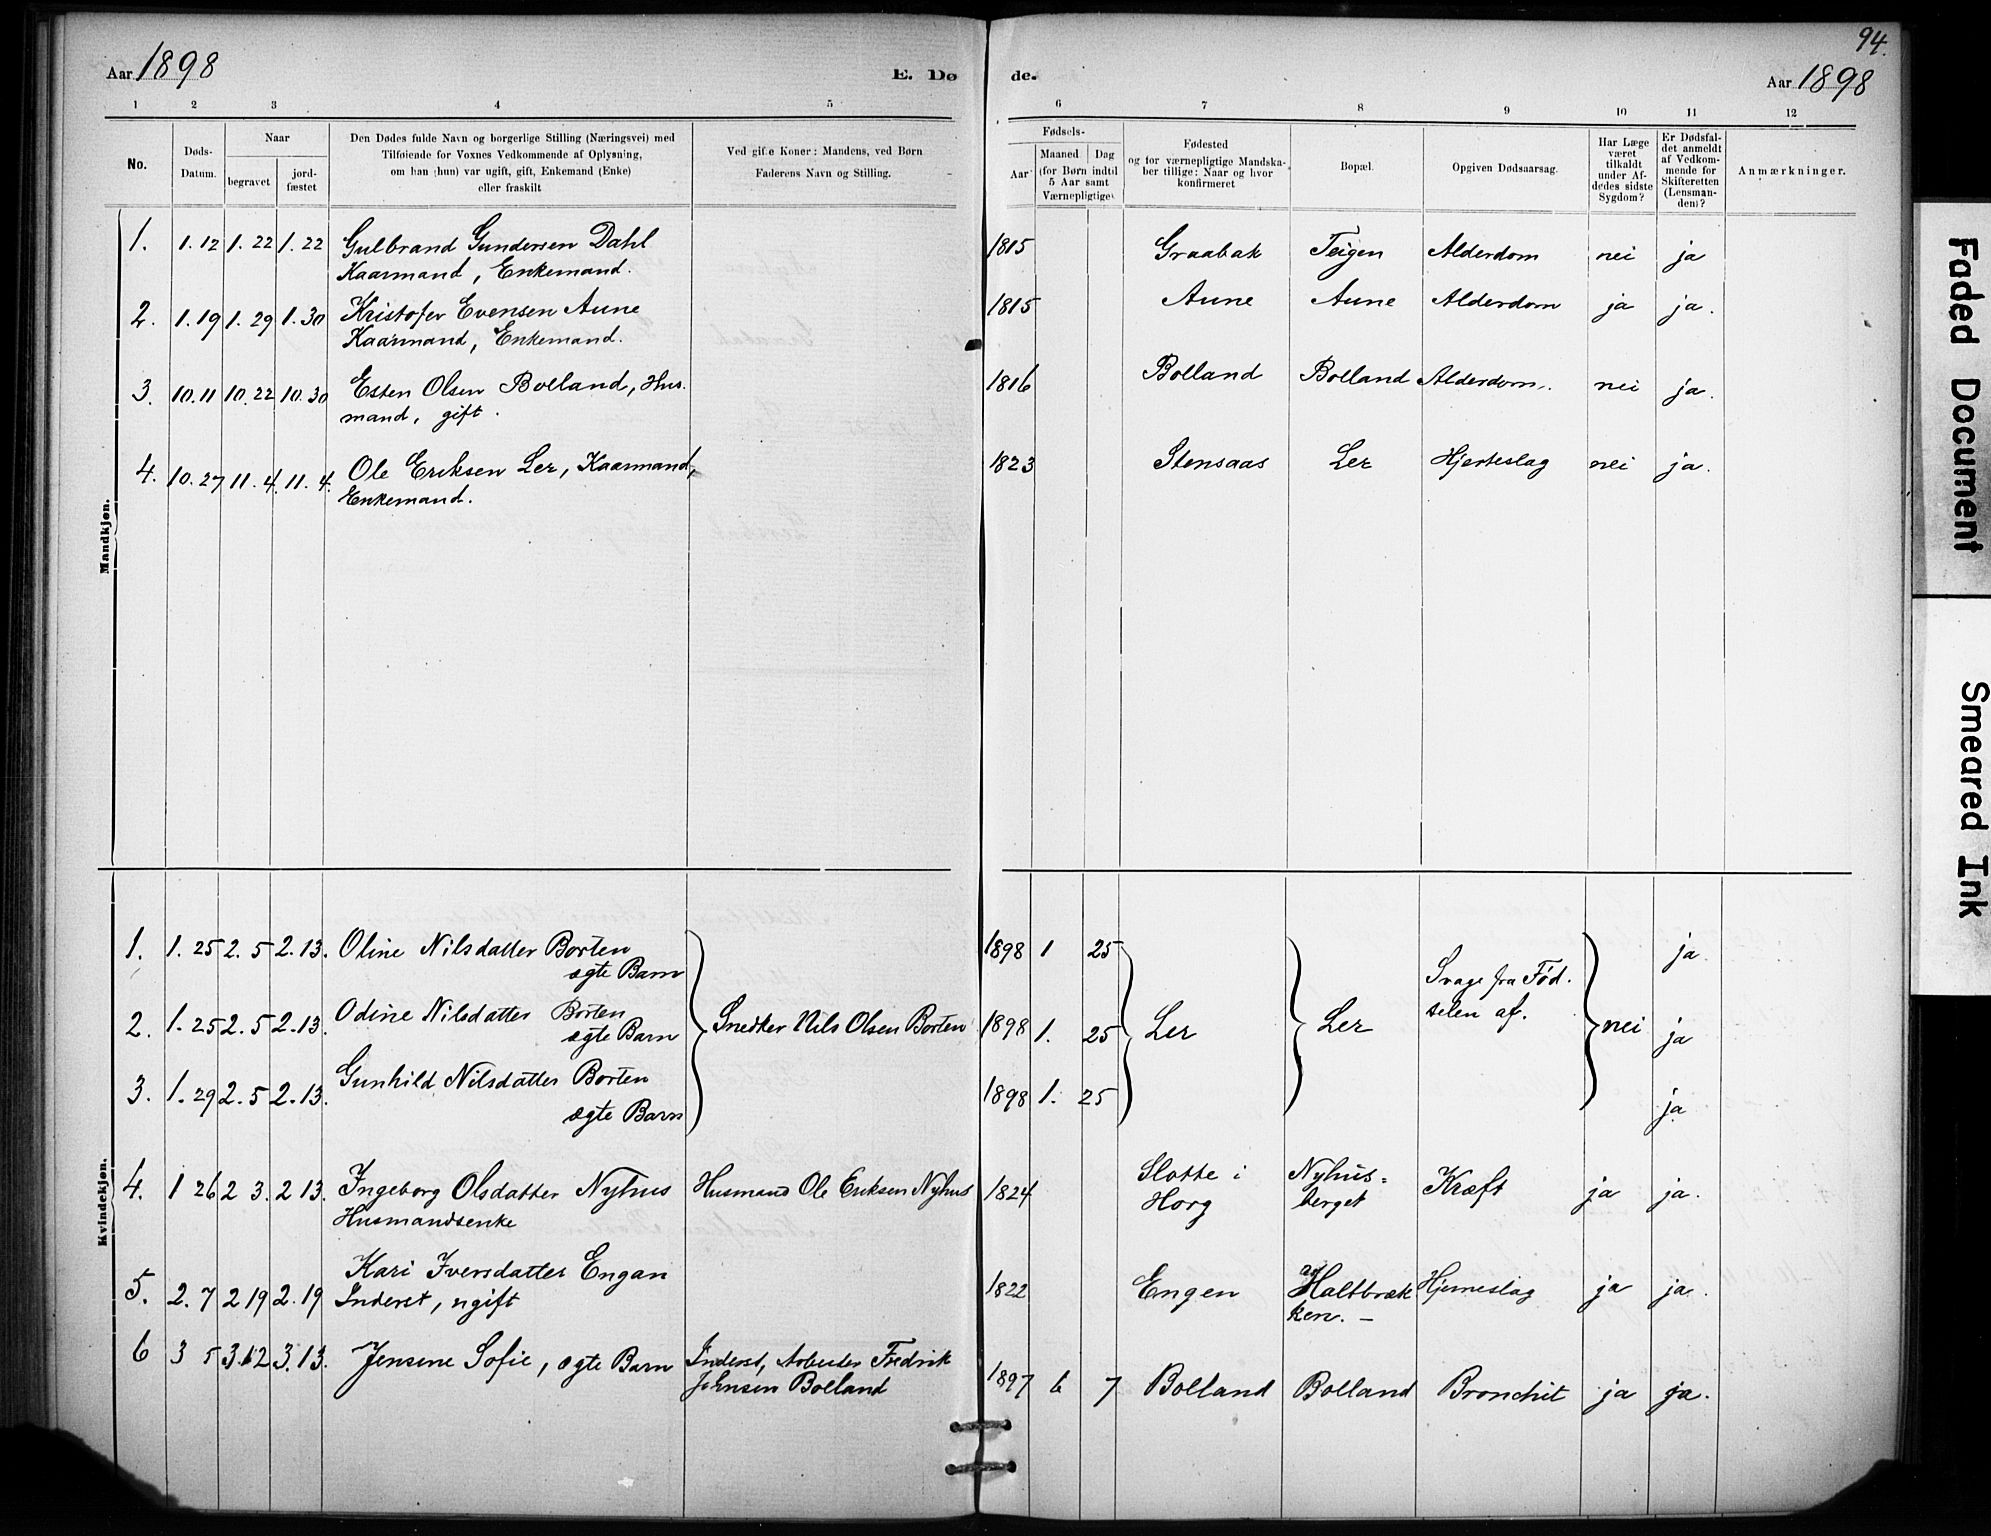 94.
Aar 1898 E. Dø de. Aar 1898
1 2 3 4 5 6 7 8 9 10 11 12
No.
Døds-
Datum.
Naar
begravet
jord-
fæstet
Den Dødes fulde Navn og borgerlige Stilling (Næringsvei) med
Tilføiende for Voxnes Vedkommende af Oplysning,
om han (hun) var ugift, gift, Enkemand (Enke)
eller fraskilt
Ved gifte Koner: Mandens, ved Børn
Faderens Navn og Stilling.
Fødsels-
Aar
Maaned Dag
(for Børn indtil
5 Aar samt
Værnepligtige)
Fødested
og for værnepligtige Mandska-
ber tillige: Naar og hvor
konfirmeret
Bopæl.
Opgiven Dødsaarsag.
Har Læge
været
tilkaldt
under Af-
dødes sidste
Sygdom?
Er Dødsfal-
det anmeldt
af Vedkom-
mende for
Skifteretten
(Lensman-
den)?
Anmærkninger.
Mandkjøn.
1. 1.12 1.22 1.22 Gulbrand Gundersen Dahl 1815 Graabak Teigen Alderdom nei ja
Kaarmand, Enkemand.
2. 1.19 1.29 1.30 Kristofer Evensen Aune 1815 Aune Aune Alderdom ja ja.
Kaarmand, Enkemand.
3. 10.11 10.22 10.30 Esten Olsen Bolland, Hus- 1816 Bolland Bolland Alderdom. nei ja.
mand, gift.
4. 10.27 11.4. 11.4. Ole Eriksen Ler, Kaarmand, 1823 Stensaas Ler Hjerteslag nei ja.
Enkemand.
Kvindekjøn.
1. 1.25 2.5 2.13. Oline Nilsdatter Borten 1898 1 25 ja
ægte Barn
Svage fra Fød-
selen af.
2. 1.25 2.5 2.13. Odine Nilsdatter Borten Snedker Nils Olsen Borten 1898 1. 25 Ler Ler nei ja
ægte Barn
3. 1.29 2.5 2.13. Gunhild Nilsdatter Borten 1898 1. 25 ja
ægte Barn
4. 1 26 2 3. 2 13. Ingeborg Olsdatter Nyhus Husmand Ole Eriksen Nyhus 1824 Slotte i Nyhus= Kræft ja ja.
Husmandsenke Horg berget
5. 2.7 2 19 2.19 Kari Iversdatter Engan 1822 Engen Haltbræk Hjerneslag ja ja.
Inderst, ugift ken. –
6 3 5 3.12 3.13. Jensine Sofie, ægte Barn Inderst, Arbeider Fredrik 1897 6 7 Bolland Bolland Bronchit ja ja.
Johnsen Bolland
Faded Document
Smeared Ink